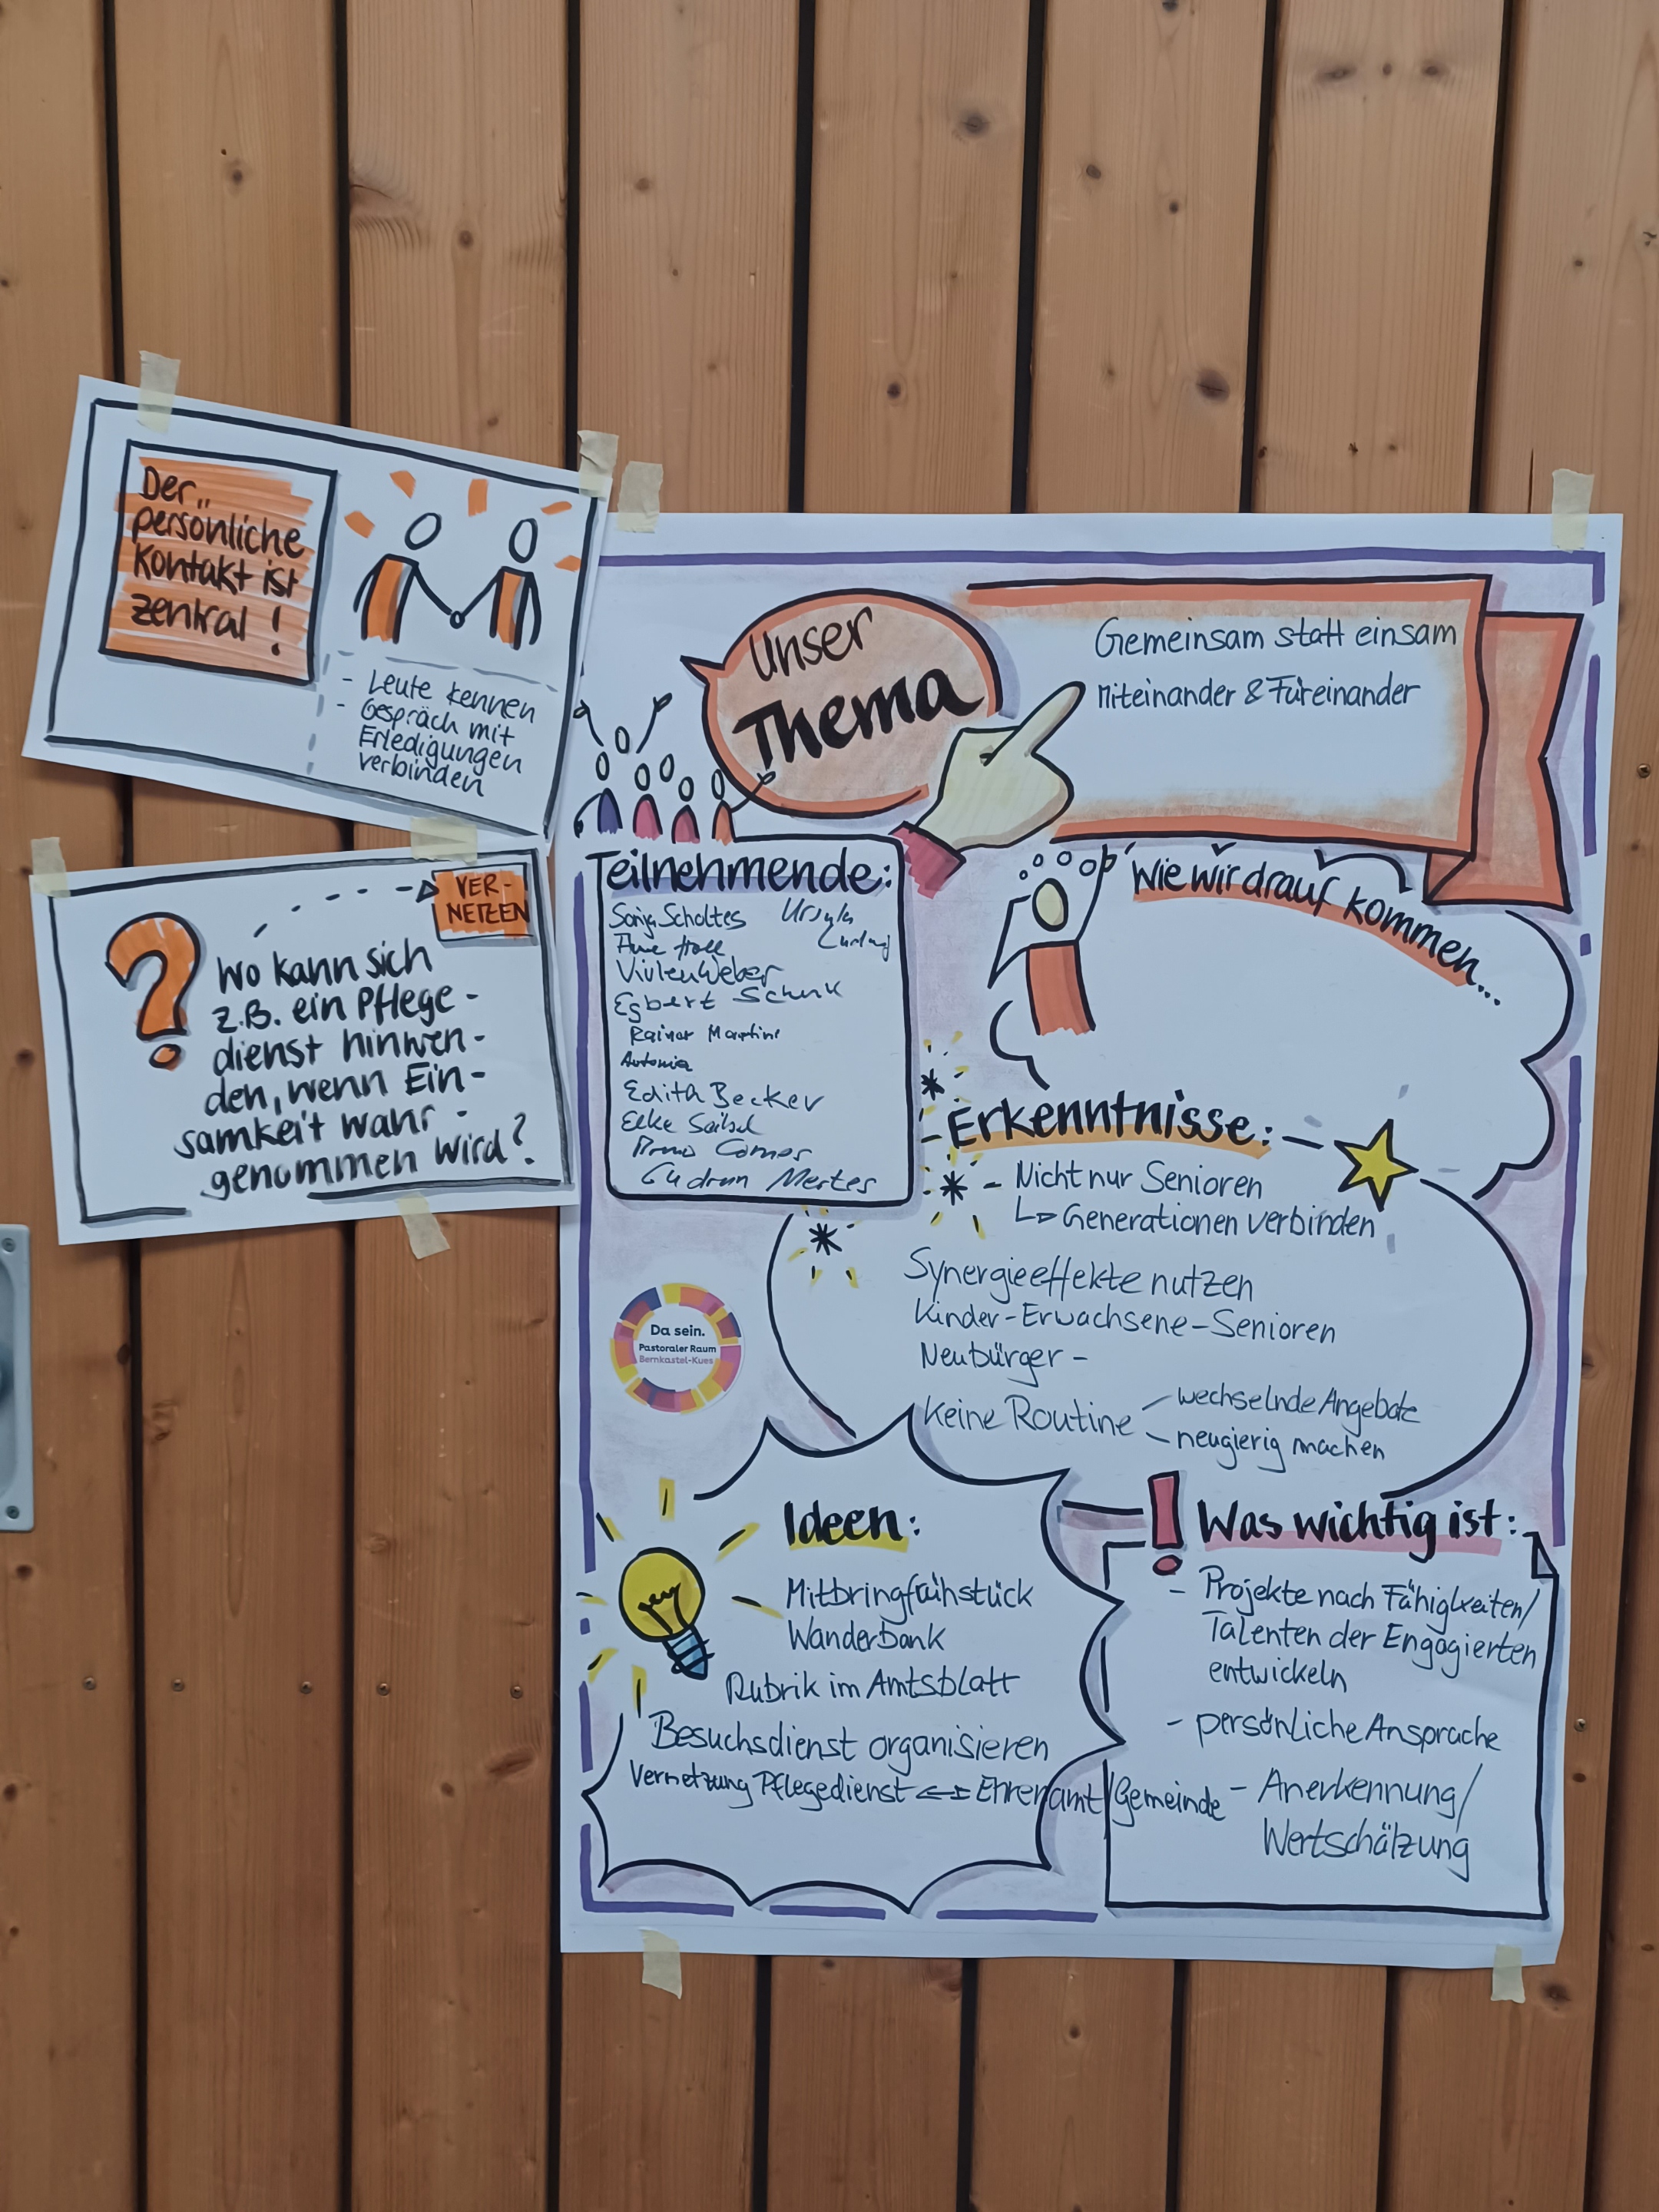 Der
persönliche
Kontakt ist
zentral!
- Leute kennen
- Gespräch mit
Erledigungen
verbinden
VER-
NETZEN
Wo kann sich
z.B. ein Pflege-
dienst hinwen-
den, wenn Ein-
samkeit wahr-
genommen wird?
Unser
Thema
Gemeinsam statt einsam
Miteinander & Füreinander
Teilnehmende:
Sonja Scholtes
Ursula
Vivien Weber
Egbert Schenk
Rainer Martini
Antonia
Edith Becker
Elke
Gudrun Mertes
Wie wir drauf kommen...
Erkenntnisse:
- Nicht nur Senioren
↳ Generationen verbinden
Synergieeffekte nutzen
Kinder-Erwachsene-Senioren
Neubürger -
Keine Routine
- wechselnde Angebote
- neugierig machen
Da sein.
Pastoraler Raum
Bernkastel-Kues
Ideen:
Mitbringfrühstück
Wanderbank
Rubrik im Amtsblatt
Besuchsdienst organisieren
Vernetzung Pflegedienst <-> Ehrenamt/Gemeinde
Was wichtig ist:
- Projekte nach Fähigkeiten/
Talenten der Engagierten
entwickeln
- persönliche Ansprache
- Anerkennung/
Wertschätzung